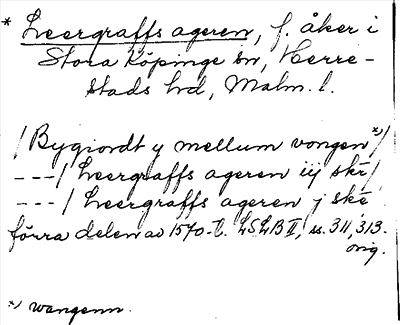 * Leergraffs ageren, f. åker i
Stora Köpinge sn, Herre-
stads hd, Malm. l.
/Bygiordt y mellum vongen *)/
---/ Leergraffs ageren iij skr/
---/ Leergraffs ageren j ske
förra delen av 1570-t. LSLB II, ss. 311, 313.
orig.
*) wangenn.